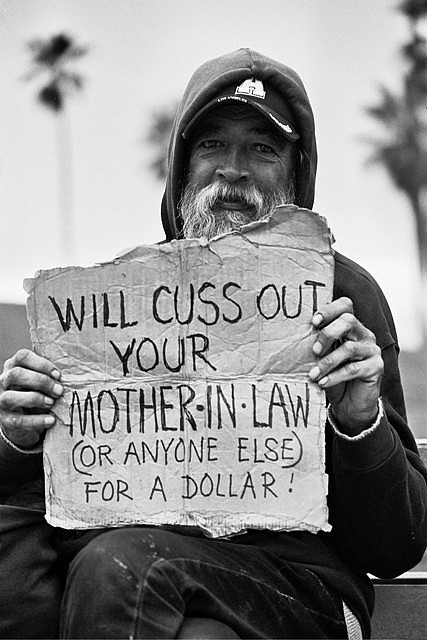 LOS ANGELES
WILL CUSS OUT
YOUR
MOTHER-IN-LAW
(OR ANYONE ELSE)
FOR A DOLLAR!